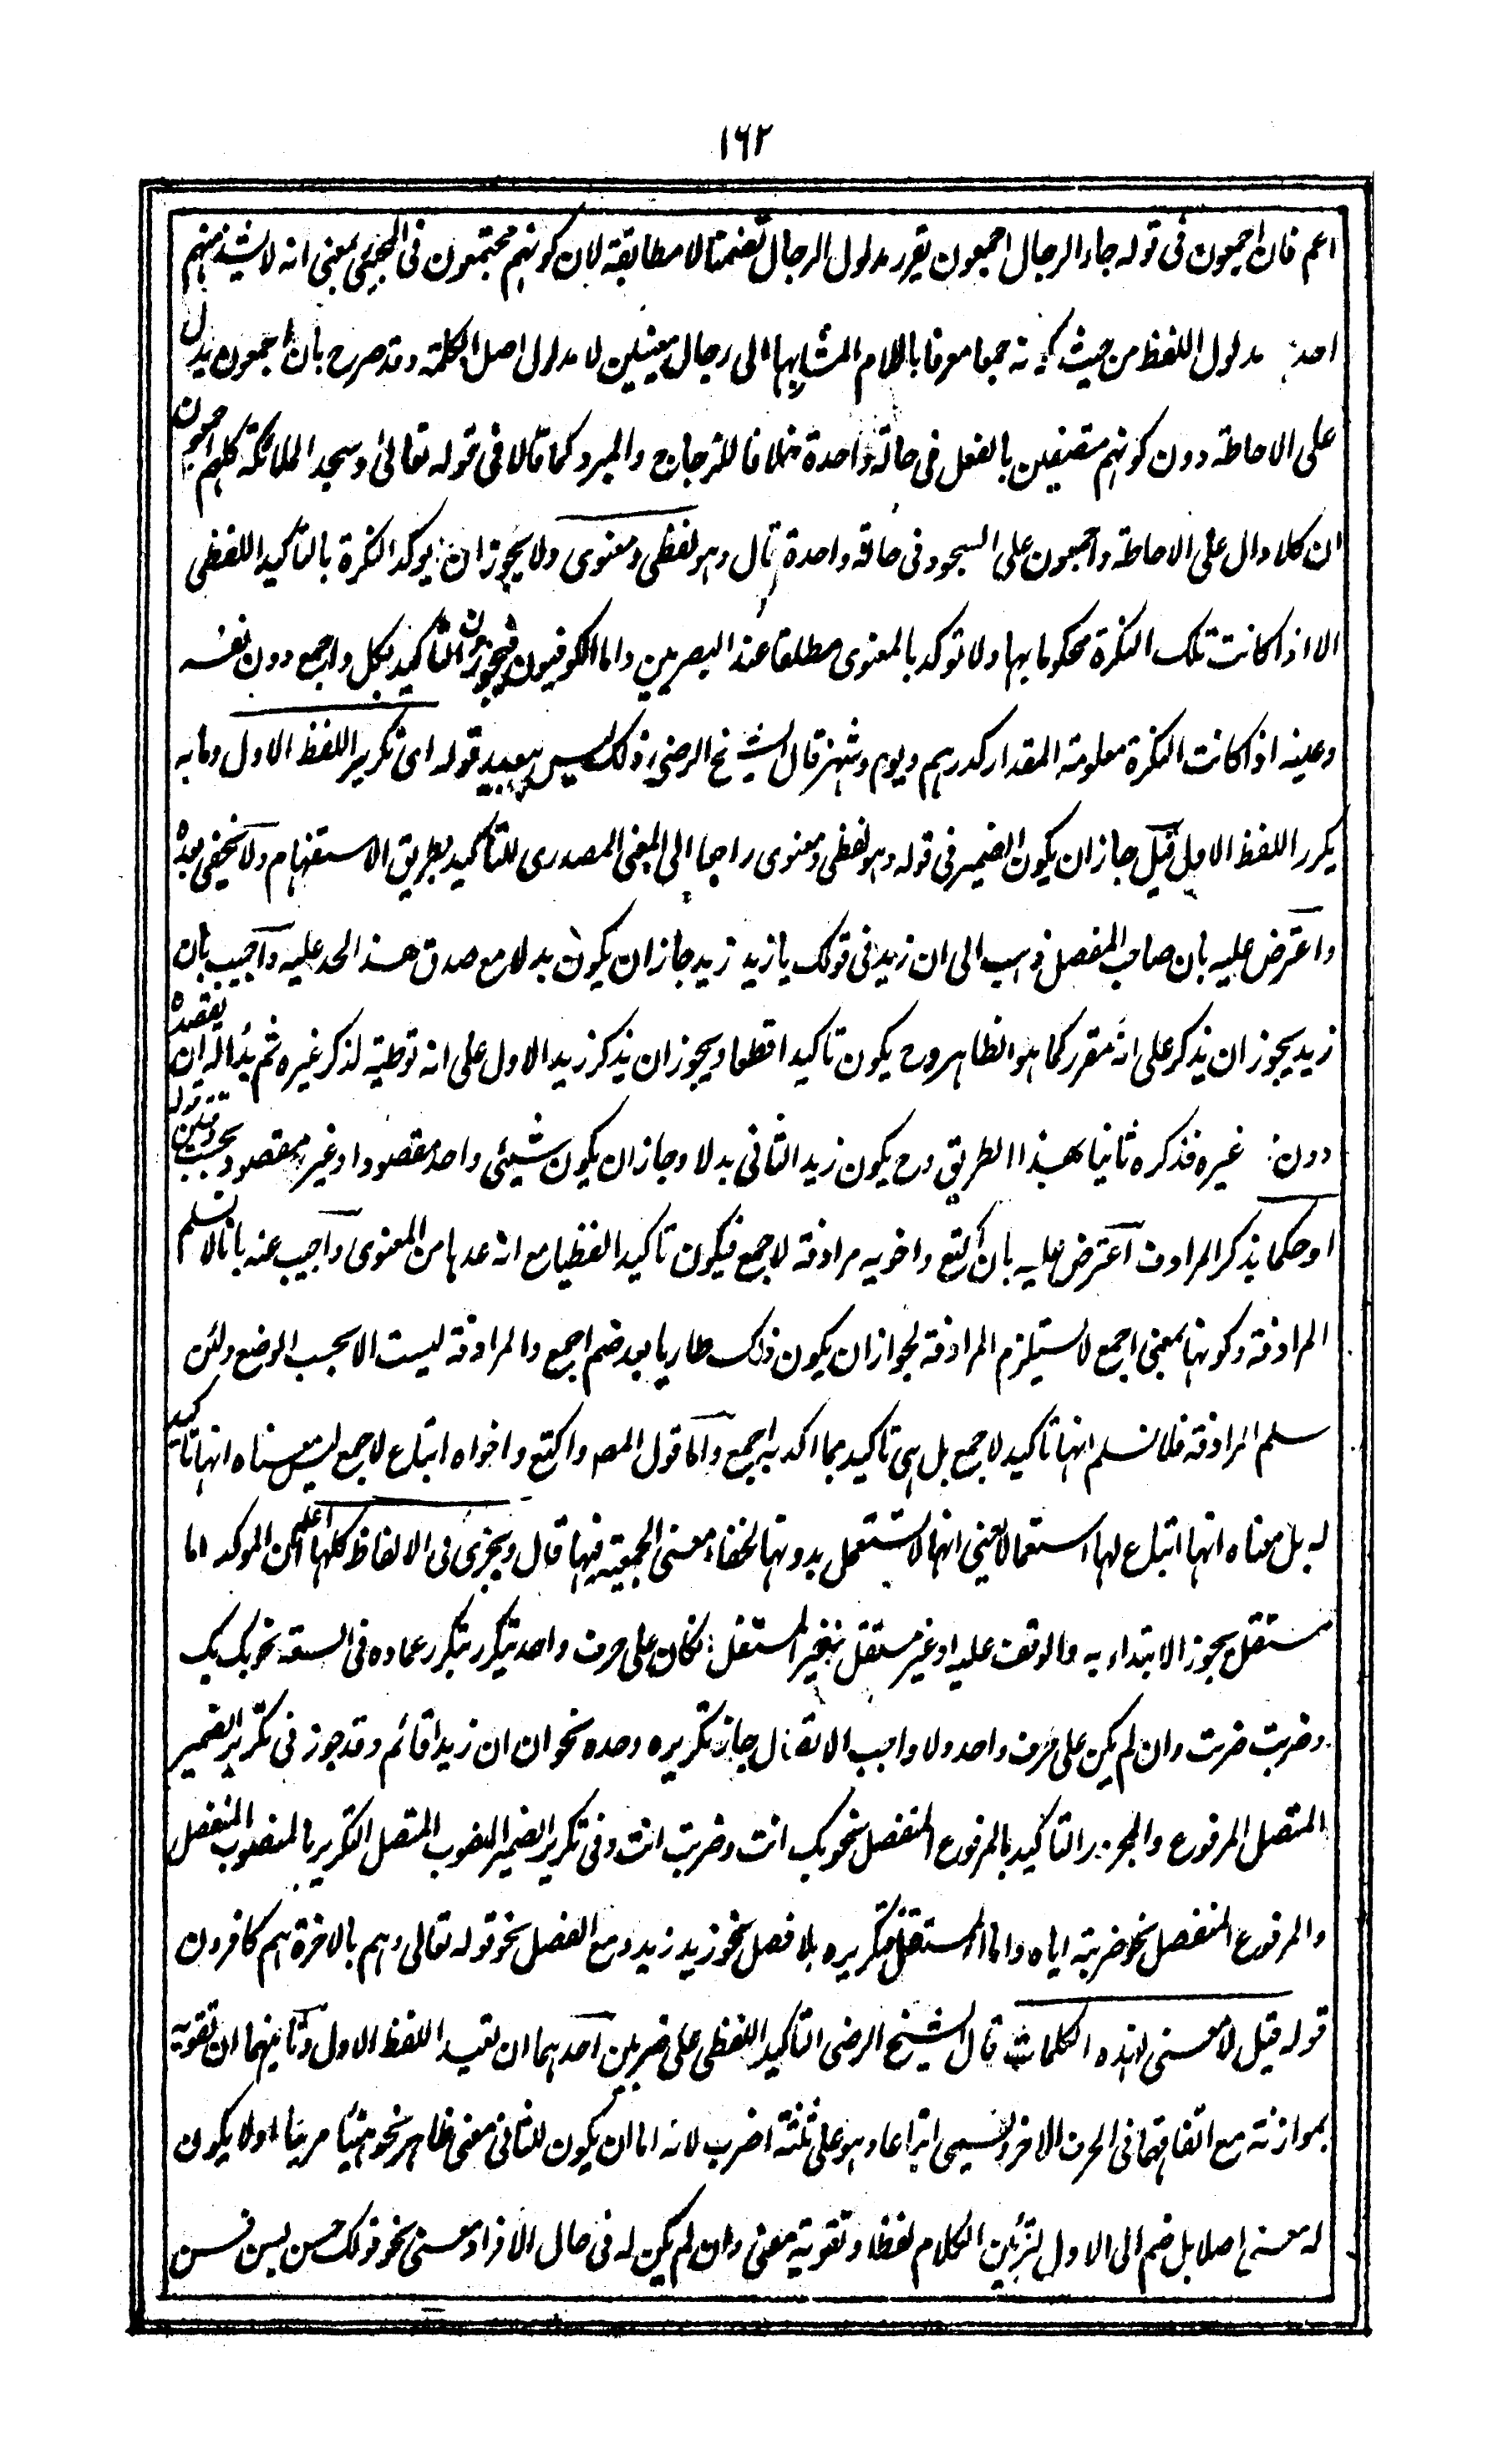 ١٦٢
اعم فان اجمعون فى قوله جاء الرجال اجمعون يقرر مدلول الرجال تضمنا لا مطابقة لان كونهم مجتمعون فى المجئى بمعنى انه لا يشذ منهم
احد مدلول اللفظ من حيث كونه جمعا معرفا باللام المشار بها الى رجال معينين لا مدلول اصل الكلمة وقد صرح بان اجمعون يدل
على الاحاطة دون كونهم متصفين بالفعل فى حالة واحدة خلافا للزجاج والمبرد كما قالا فى قوله تعالى وسجد الملائكة كلهم اجمعون
ان كلا دال على الاحاطة واجمعون على السجود فى حالة واحدة قال وهو لفظى ومعنوى ولا يجوز ان يوكد النكرة بالتاكيد اللفظى
الا اذا كانت تلك النكرة محكوما بها ولا توكد بالمعنوى مطلقا عند البصريين واما الكوفيون فيجوزون التأكيد بكل واجمع دون نفسه
وعينه اذا كانت النكرة معلومة المقدار كدرهم ويوم وشهر قال الشيخ الرضى وذلك ليس ببعيد قوله اى تكرير اللفظ الاول وما به
يكرر اللفظ الاول قيل جاز ان يكون الضمير فى قوله وهو لفظى ومعنوى راجعا الى المعنى المصدرى للتأكيد بطريق الاستفهام ولا يخفى بعده
واعترض عليه بان صاحب المفصل ذهب الى ان زيد فى قولك يا زيد زيد جاز ان يكون بدلا مع صدق هذا الحد عليه واجيب بان
زيد يجوز ان يذكر على انه مقرر كما هو الظاهر وح يكون تاكيدا قطعا ويجوز ان يذكر زيد الاول على انه توطية لذكر غيره ثم بدا له ان يقصده
دون غيره فذكره ثانيا بهذا الطريق وح يكون زيد الثانى بدلا وجاز ان يكون شيئى واحد مقصودا وغير مقصود بحسب وقتين قوله
او حكما بذكر المرادف اعترض عليه بان اكتع واخويه مرادفة لاجمع فيكون تاكيدا لفظيا مع انه عدها من المعنوى واجيب عنه بانا لا نسلم
المرادفة وكونها بمعنى اجمع لا يستلزم المرادفة لجواز ان يكون ذلك طاريا بعد ضم اجمع والمرادفة ليست الا بحسب الوضع ولئن
سلم المرادفة فلا نسلم انها تاكيد لاجمع بل هى تاكيد بما اكد به اجمع واما قول المصـ واكتع واخواه اتباع لاجمع ليس معناه انها تاكيد
له بل معناه انها اتباع لها استعمالا يعنى انها لا تستعمل بدونها لخفاء معنى الجمعية فيها قال ويجرى فى الالفاظ كلها اعلم ان الموكد اما
مستقل يجوز الابتداء به والوقف عليه او غير مستقل فغير المستقل ان كان على حرف واحد يتكرر بتكرر عماده فى السعة نحو بك بك
وضربت ضربت وان لم يكن على حرف واحد ولا واجب الاتصال جاز تكريره وحده نحو ان ان زيدا قائم وقد جوز فى تكرير الضمير
المتصل المرفوع والمجرور التاكيد بالمرفوع المنفصل نحو بك انت وضربت انت وفى تكرير الضمير المنصوب المتصل التكرير بالمنصوب المنفصل
والمرفوع المنفصل نحو ضربته اياه واما المستقل فتكريره بلا فصل نحو زيد زيد ومع الفصل نحو قوله تعالى وهم بالاخرة هم كافرون
قوله قيل لا معنى لهذه الكلمات قال الشيخ الرضى التاكيد اللفظى على ضربين احدهما ان تعيد اللفظ الاول وثانيهما ان تقويه
بموازنة مع اتفاقهما فى الحرف الاخر ويسمى اتباعا وهو على ثلثة اضرب لانه اما ان يكون للثانى معنى ظاهر نحو هنيئا مريئا اولا يكون
له معنى اصلا بل ضم الى الاول لتزئين الكلام لفظا وتقويته معنى وان لم يكن له فى حال الافراد معنى نحو قولك حسن بسن فسن